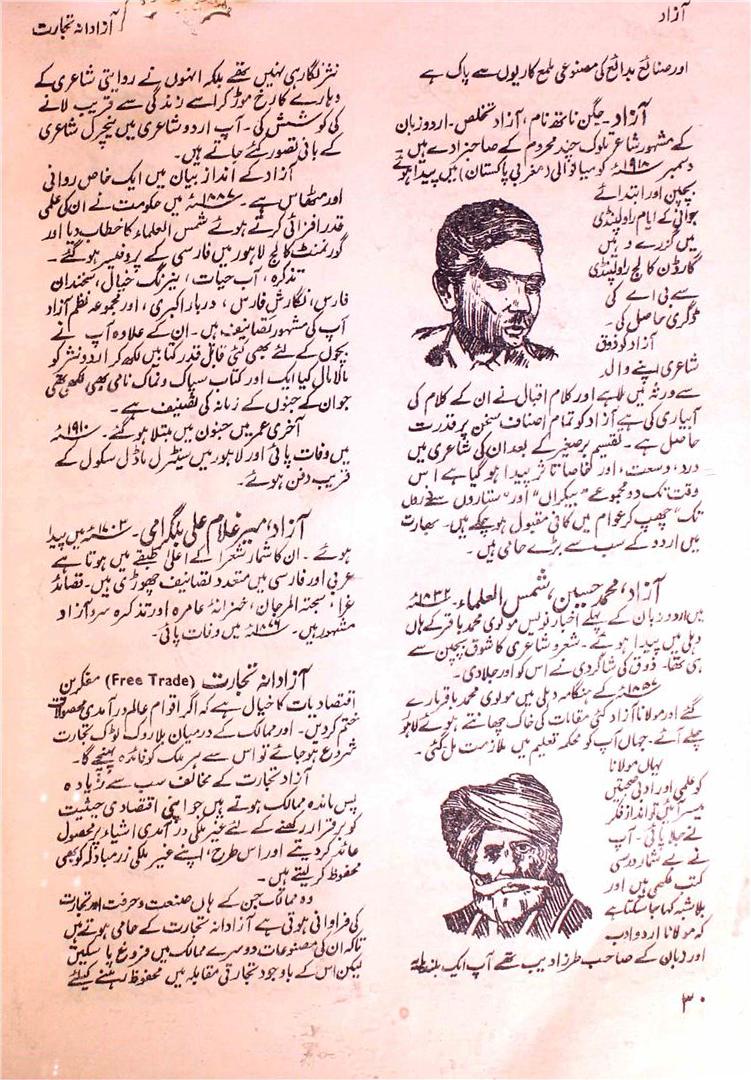 آزاد
آزادانہ تجارت
اور صنائع بدائع کی مصنوعی ملمع کاریوں سے پاک ہے
آزاد۔ جگن ناتھ نام، آزاد تخلص۔ اردو زبان
کے مشہور شاعر تلوک چند محروم کے صاحبزادے ہیں۔
دسمبر ۱۹۱۸ء کو میانوالی (مغربی پاکستان) میں پیدا ہوئے
بچپن اور ابتدائے
جوانی کے ایام راولپنڈی
میں گزرے وہیں
گارڈن کالج راولپنڈی
سے بی اے کی
ڈگری حاصل کی۔
آزاد کو ذوق
شاعری اپنے والد
سے ورثہ میں ملا ہے اور کلام اقبال نے ان کے کلام کی
آبیاری کی ہے آزاد کو تمام اصناف سخن پر قدرت
حاصل ہے۔ تقسیم برصغیر کے بعد ان کی شاعری میں
درد، وسعت، اور خاصا تاثر پیدا ہو گیا ہے اس
وقت تک دو مجموعے "بیکراں" اور "ستاروں سے ذروں
تک" چھپ کر عوام میں کافی مقبول ہو چکے ہیں۔ بھارت
میں اردو کے سب سے بڑے حامی ہیں۔
آزاد، محمد حسین، شمس العلماء۔ ۱۸۳۲ء
میں اردو زبان کے پہلے اخبار نویس مولوی محمد باقر کے ہاں
دہلی میں پیدا ہوئے۔ شعر و شاعری کا شوق بچپن سے
ہی تھا۔ ذوق کی شاگردی نے اس کو اور جلا دی۔
۱۸۵۷ء کے ہنگامہ دہلی میں مولوی محمد باقر مارے
گئے اور مولانا آزاد کئی مقامات کی خاک چھانتے ہوئے لاہور
چلے آئے۔ جہاں آپ کو محکمہ تعلیم میں ملازمت مل گئی۔
یہاں مولانا
کو علمی اور ادبی صحبتیں
میسر آئیں تو انداز فکر
نے جلا پائی۔ آپ
نے بے شمار درسی
کتب لکھی ہیں اور
بلاشبہ کہا جا سکتا ہے
کہ مولانا اردو ادب
اور زبان کے صاحب طرز ادیب تھے آپ ایک بلند پایہ
نثر نگار ہی نہیں تھے بلکہ انہوں نے روایتی شاعری کے
دھارے کا رخ موڑ کر اسے زندگی سے قریب لانے
کی کوشش کی۔ آپ اردو شاعری میں نیچرل شاعری
کے بانی تصور کئے جاتے ہیں۔
آزاد کے انداز بیان میں ایک خاص روانی
اور مٹھاس ہے۔ ۱۸۸۷ء میں حکومت نے ان کی علمی
قدر افزائی کرتے ہوئے شمس العلماء کا خطاب دیا اور
گورنمنٹ کالج لاہور میں فارسی کے پروفیسر ہو گئے۔
تذکرہ، آب حیات، نیرنگ خیال، سخندان
فارس، نگارش فارس، دربار اکبری، اور مجموعہ نظم آزاد
آپ کی مشہور تصانیف ہیں۔ ان کے علاوہ آپ نے
بچوں کے لئے بھی کئی قابل قدر کتابیں لکھ کر اردو نثر کو
مالا مال کیا ایک اور کتاب سپاک و نماک نامی بھی لکھی تھی
جو ان کے جنون کے زمانہ کی تصنیف ہے۔
آخری عمر میں جنون میں مبتلا ہو گئے۔ ۱۹۱۰ء
میں وفات پائی اور لاہور میں سینٹرل ماڈل سکول کے
قریب دفن ہوئے۔
آزاد، میر غلام علی بلگرامی۔ ۱۷۰۴ء میں پیدا
ہوئے۔ ان کا شمار شعرا کے اعلیٰ طبقے میں ہوتا ہے
عربی اور فارسی میں متعدد تصانیف چھوڑی ہیں۔ قصائد
غرا، سبحتہ المرجان، خزانۂ عامرہ اور تذکرہ سرو آزاد
مشہور ہیں۔ میں وفات پائی۔
آزادانہ تجارت (Free Trade) مفکرین
اقتصادیات کا خیال ہے کہ اگر اقوام عالم درآمدی محصولات
ختم کر دیں۔ اور ممالک کے درمیان بلا روک ٹوک تجارت
شروع ہو جائے تو اس سے ہر ملک کو فائدہ پہنچے گا۔
آزاد تجارت کے مخالف سب سے زیادہ
پس ماندہ ممالک ہوتے ہیں جو اپنی اقتصادی حیثیت
کو برقرار رکھنے کے لئے غیر ملکی درآمدی اشیاء پر محصول
عائد کر دیتے اور اس طرح، اپنے غیر ملکی زرمبادلہ کو بھی
محفوظ کر لیتے ہیں۔
وہ ممالک جن کے ہاں صنعت و حرفت اور تجارت
کی فراوانی ہوتی ہے آزادانہ تجارت کے حامی ہوتے ہیں
تاکہ ان کی مصنوعات دوسرے ممالک میں فروغ پا سکیں
لیکن اس کے باوجود تجارتی مقابلہ میں محفوظ رہنے کیلئے
۳۰